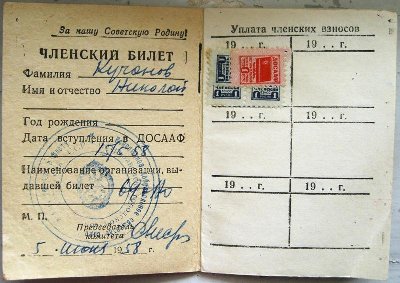 За нашу Советскую Родину!
ЧЛЕНСКИЙ БИЛЕТ
Фамилия
Имя и отчество Николай
Год рождения
Дата вступления в ДОСААФ
Наименование организации, вы-
давшей билет
М. П.
Председатель
комитета
5 июня 1958 г.
Уплата членских взносов
19 . . г. 19 . . г.
ДОСААФ
19 . . г. 19 . . г.
19 . . г. 19 . . г.